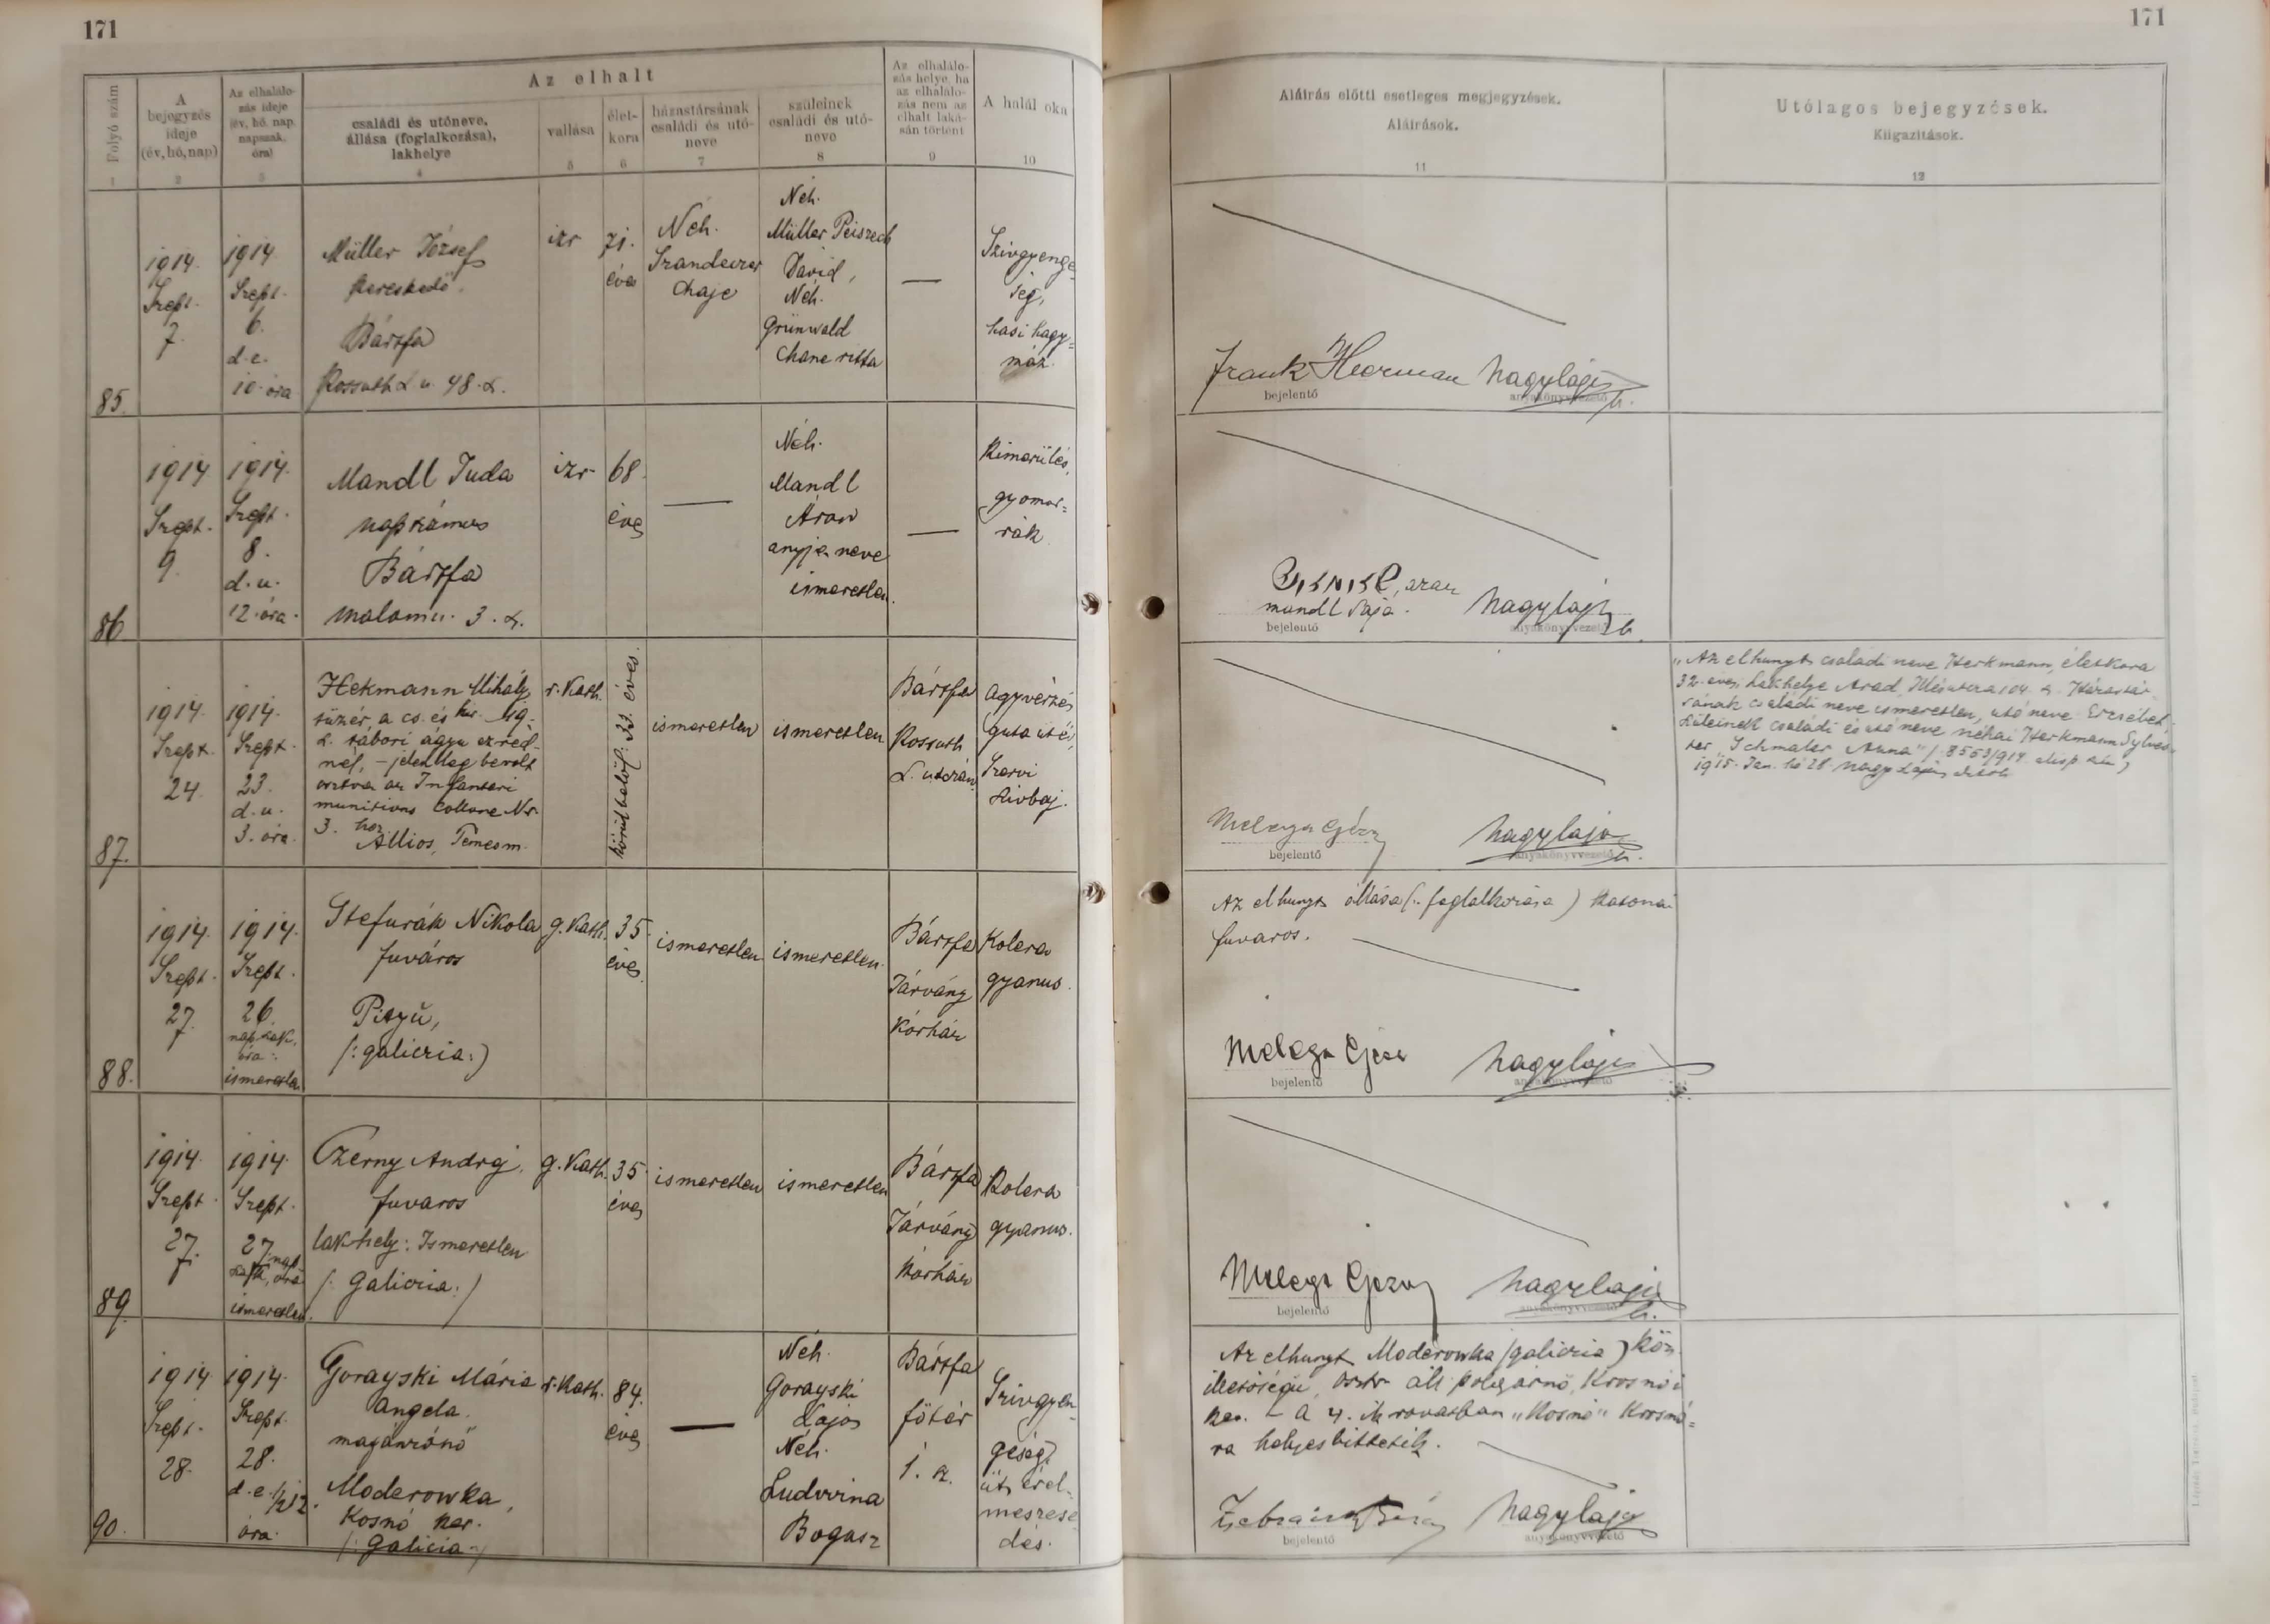 171
171
Folyó szám
1
A bejegyzés ideje (év, hó, nap)
2
Az elhalálozás ideje (év, hó, nap, napszak, óra)
3
Az elhalt
családi és utóneve,
állása (foglalkozása),
lakhelye
4
vallása
5
életkora
6
házastársának
családi és utóneve
7
szüleinek
családi és utóneve
8
Az elhalálo-
zás helye, ha
az elhalálo-
zás nem az
elhalt laká-
sán történt
9
A halál oka
10
Aláírás előtti esetleges megjegyzések.
Aláírások.
11
Utólagos bejegyzések.
Kiigazítások.
12
85.
1914.
Szept.
7.
1914.
Szept.
6.
d.e.
10. óra
Müller József
kereskedő.
Bártfa
Kossuth L. u. 48. sz.
izr
71.
éves
Néh.
Chaje
Néh.
Müller
Dávid,
Néh.
Grünwald
Chane
—
Szivgyenge-
ség,
hasi hagy=
máz.
Frank Herman Nagy Lajos
bejelentő anyakönyvvezető
86
1914
Szept.
9.
1914.
Szept.
8.
d.u.
12. óra.
Mandl Juda
napszámos
Bártfa
malom u. 3. sz.
izr
68.
éves
—
Néh.
Mandl
Áron
anyja neve
ismeretlen.
—
Kimerülés,
gyomor=
rák
mandl
Nagy Lajos
bejelentő anyakönyvvezető
87.
1914.
Szept.
24.
1914.
Szept.
23.
d.u.
3. óra
Hekmann Mihály
tüzér, a cs. és kir.
sz. tábori ágyu ezred-
nél, – jelenleg beosztva az Infanteri
munitions Collone Nr.
3. hoz
Allios, Temesm.
r. kath.
körülbelöl: 33. éves.
ismeretlen
ismeretlen
Bártfa
Kossuth
L. utczán
agyvérzés
guta ütés,
Szervi
szivbaj.
Melega Géza Nagy Lajos
bejelentő anyakönyvvezető
„Az elhunyt családi neve Herkmann, életkora
32. éves, lakhelye Arad, 104. sz. Házastár-
sának családi neve ismeretlen, utóneve Erzsébet,
szüleinek családi és utóneve néhai Herkmann Sylves-
ter, Schmaler Anna" /: 8563/914
1915. Jan. hó 28 Nagy Lajos
88.
1914.
Szept.
27.
1914.
Szept.
26.
napszak,
óra:
ismeretlen
Stefurák Nikola
fuváros
(: galiczia :)
g. kath.
35.
éves
ismeretlen
ismeretlen.
Bártfa
Járvány
kórház
Kolera
gyanus.
Az elhunyt állása (: foglalkozása ) katonai
fuvaros.
Melega Géza Nagy Lajos
bejelentő anyakönyvvezető
89.
1914.
Szept.
27.
1914.
Szept.
27. nap-
szak, óra
ismeretlen.
Czerny Andrej,
fuvaros
lakhely: Ismeretlen
(: Galiczia :)
g. kath.
35.
éves
ismeretlen
ismeretlen
Bártfa
Járvány
kórház
Kolera
gyanus.
Melega Géza Nagy Lajos
bejelentő anyakönyvvezető
90.
1914
Szept.
28.
1914.
Szept.
28.
d.e. 1/2 12.
óra.
Gorayski Mária
Angela.
magánzónő
Moderowka,
Kosnó ker.
(: Galicia :)
r. kath.
84.
éves
—
Néh.
Gorayski
Lajos
Néh.
Ludovina
Bogasz
Bártfa
főtér
1. sz.
Szivgyen-
geség,
ütérel-
meszese-
dés.
Az elhunyt Moderowka (galiczia) köz.
illetőségü, osztr. áll. polgárnő, Krosnói
ker. – A 4. ik rovatban „Kosnó" Krosnó=
ra helyesbittetik.
Nagy Lajos
bejelentő anyakönyvvezető